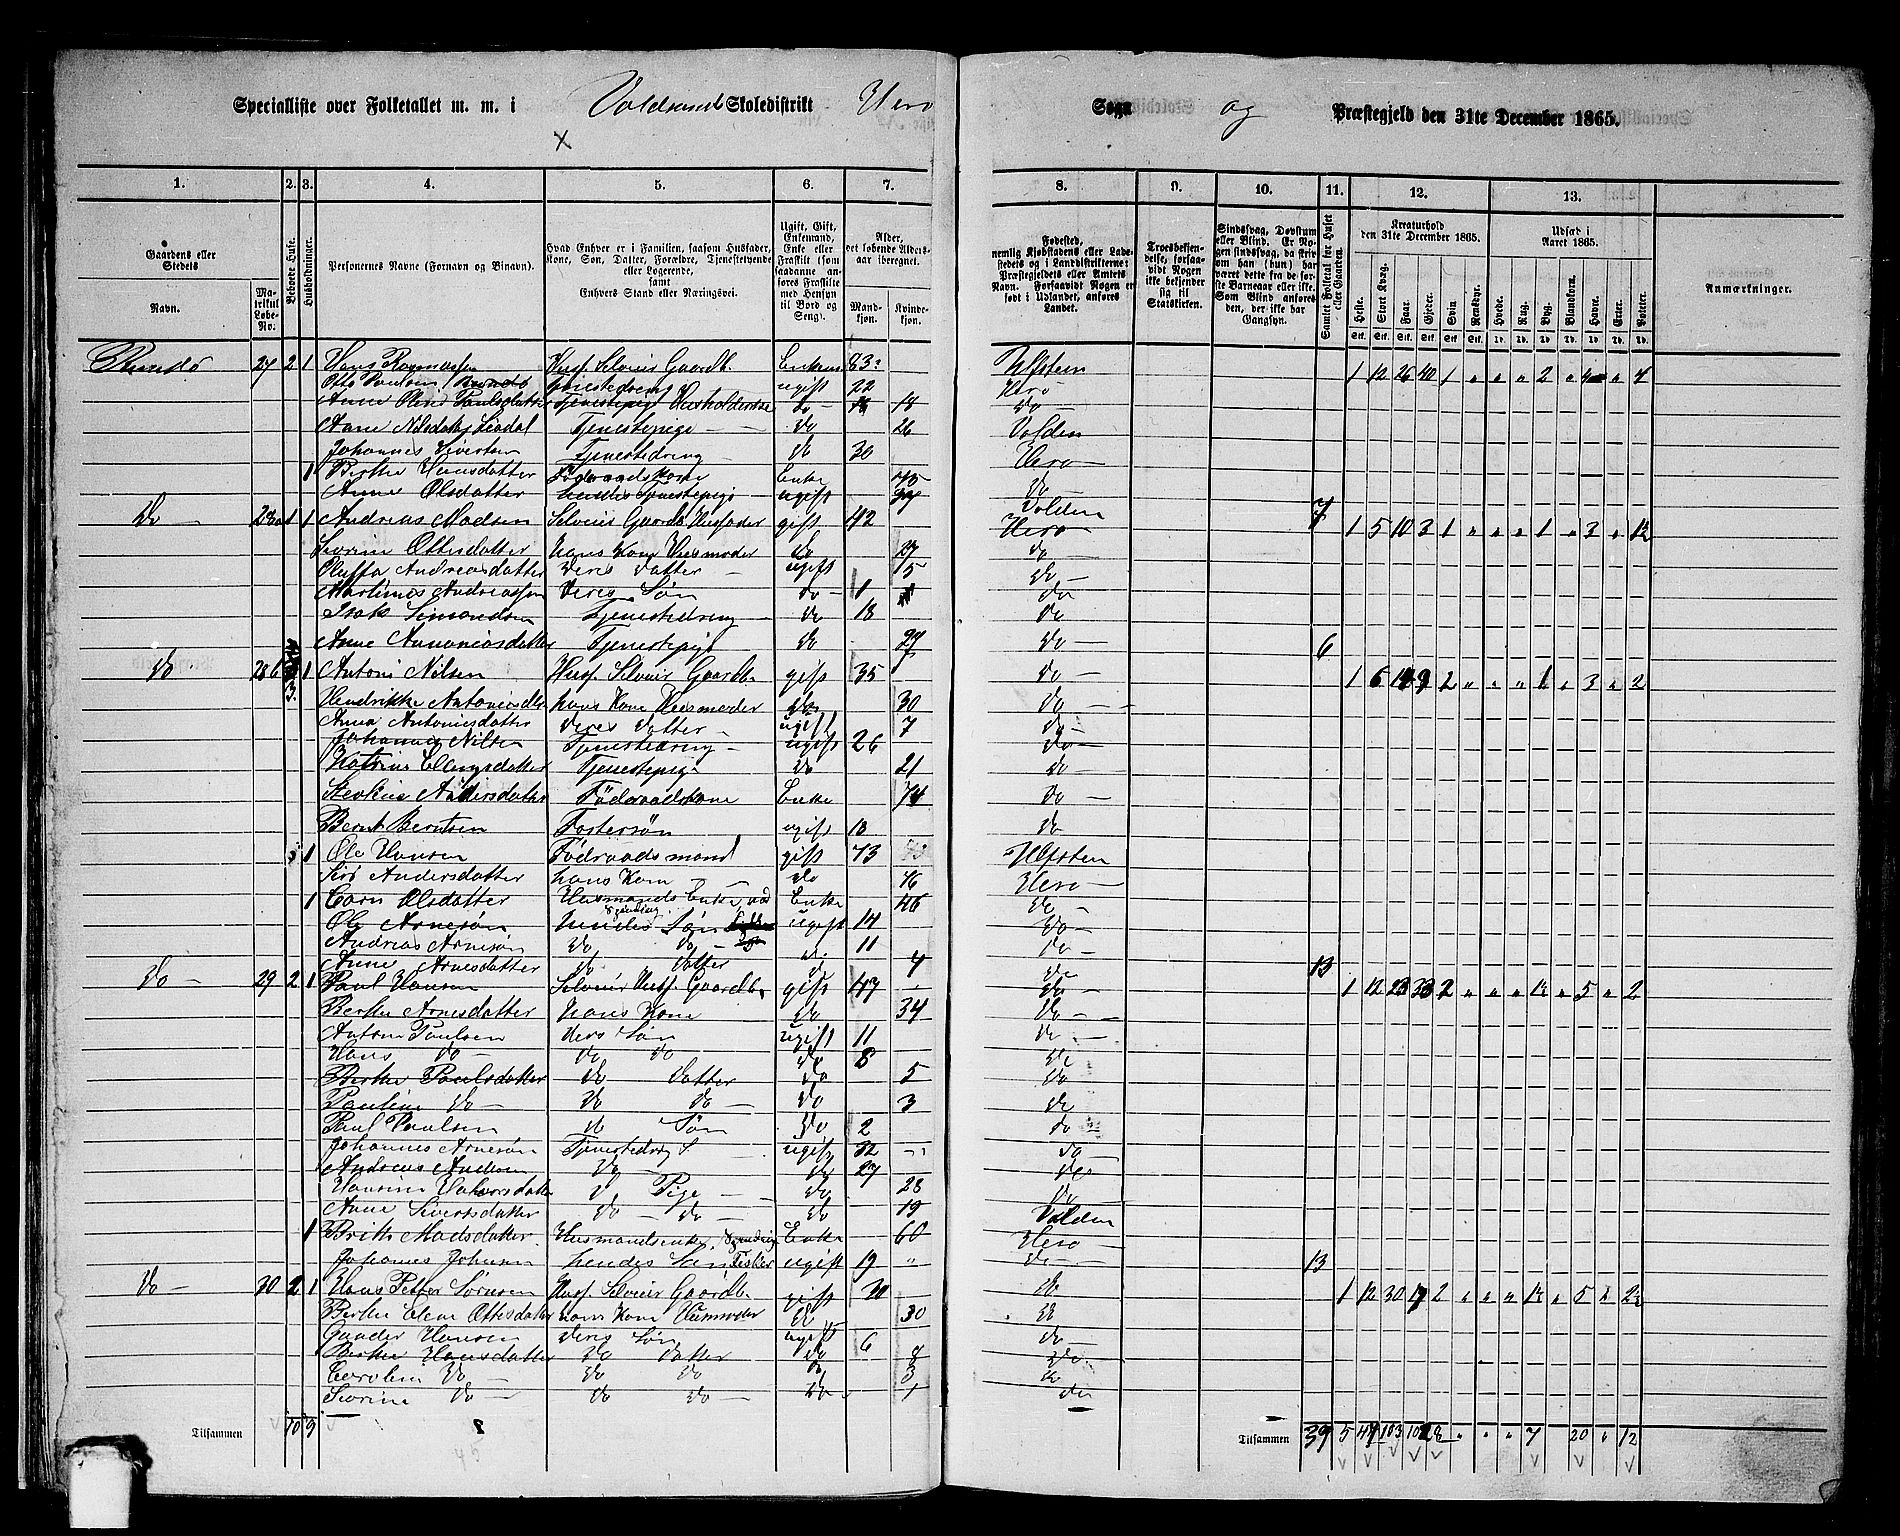 Specialliste over Folketallet m. m. i Voldsund Skoledistrikt Herø Sogn og Præstegjeld den 31te December 1865.
1. 2. 3. 4. 5. 6. 7. 8. 9. 10. 11. 12. 13.
Gaardens eller Stedets
Navn. Matrikul Løbe-No.
Beboede Huse.
Husholdninger.
Personernes Navne (Fornavn og Binavn).
Hvad Enhver er i Familien, saasom Husfader, Kone, Søn, Datter, Forældre, Tjenestetyende eller Logerende, samt Enhvers Stand eller Næringsvei.
Ugift, Gift, Enkemand, Enke eller Fraskilt (som saadanne anføres Fraskilte med Hensyn til Bord og Seng).
Alder, det løbende Aldersaar iberegnet.
Mandkjøn. Kvindekjøn.
Fødested, nemlig Kjøbstadens eller Ladestedets og i Landdistrikterne: Præstegjeldets eller Amtets Navn. Forsaavidt Nogen er født i Udlandet, anføres Landet.
Troesbekjendelse, forsaavidt Nogen ikke bekjender sig til Statskirken.
Sindssvag, Døvstum eller Blind. Er Nogen sindssvag, da skriv om han (hun) har været dette fra de første Barneaar eller ikke. Som Blind anføres den, der ikke har Gangsyn.
Samlet Folketal for Huset eller Gaarden.
Kreaturhold den 31te December 1865.
Udsæd i Aaret 1865.
Heste. Stort Kvæg. Faar. Gjeder. Svin. Rensdyr. Hvede. Rug. Byg. Blandkorn. Havre. Erter. Poteter.
Anmærkninger.
Rundø 27 2 1 Hans Rasmussen Husf. Selveier Gaardb. Enkem 83 Ulfsten 1 12 26 40 1 " " " 2 " 4 " 4
Otto Paulsen Tjenestedreng ugift 22 Herø
Anne Oline Paulsdatter Tjenestepige Husholderske do 18 do
Anne Nilsdatter Leadal Tjenestepige do 26 Volden
Johannes Sivertsen Tjenestedreng do 30 Herø
1 Berthe Hansdatter Föderaadskone Enke 75 do
Anne Olsdatter hendes Tjenestepige ugift Volden 7
Do 28a 1 1 Andreas Madsen Selveier Gaardb Husfader gift 42 Herø 1 5 10 3 1 " " " 1 " 3 " 1½
Sevrine Ottesdatter Hans Kone Husmoder do 27 do
Oluffa Andreasdatter Deres Datter ugift 5 do
Martinus Andreassen Deres Søn do 1 do
Isak Simondsen Tjenestedreng do 18 do
Anne Ananiasdatter Tjenestepige do 27 do 6
Do 28b 3 1 Antoni Nilsen Husf. Selveier Gaardb. gift 35 do 1 6 2 " " " 1 " 3 " 2
Hendrikke Antonisdtr hans Kone Husmoder do 30 do
Anna Antonisdatter deres Datter ugift 7 do
Johannes Nilsen Tjenestedreng ugift 26 do
Katrine Ellingsdatter Tjenestepige do 21 do
Andersdatter Föderaadskone Enke 74 do
Bernt Berntsen Fostersøn ugift 13 do
1 Ole Hansen Födraadsmand gift 73 Ulfsten
Siri Andersdatter hans Kone do 76 Herø
1 Carn Olsdatter Husmands Enke Enke 46 do
Ole Arnesøn Hendes Søn ugift 14 do
Andreas Arnesøn do do 11 do
Anne Arnesdatter do Datter do 4 do 13
Do 29 2 1 Paul Hansen Selveier Husf. Gaardb. gift 47 do 1 12 23 33 2 " " " 1½ " 5 " 2
Berthe Arnesdatter Hans Kone do 34 do
Anton Paulsen Ders Søn ugift 11 do
Hans do do do do 8 do
Berthe Paulsdatter do Datter do 5 do
Pauline do do do do 3 do
Paul Paulsen do Søn do 2 do
Johannes Arnesøn Tjenestedreng ugift 32 do
Andreas Andersen do do 27 do
Hansine Halvorsdatter do Pige do 28 do
Anne Sivertsdatter do do do 19 Volden
1 Brith Madsdatter Husmandsenke Enke 60 Herø
Johannes Johnsen hendes Søn Fisker ugift 19 " do 13
Do 30 2 1 Hans Petter Sørensen Husf. Selveier Gaardb. gift 30 do 1 12 30 17 2 " " " 1½ " 5 " 2½
Berthe Elene Ottesdatter hans Kone Husmoder do 30 do
Hansen deres Søn ugift 6 do
Berthe Hansdatter do datter do 8 do
Caroline do do do do 3 do
Sevrine do do do do 1 do
Tilsammen 10 9 Tilsammen 39 5 47 103 102 8 " " " 7 20 " 12
45